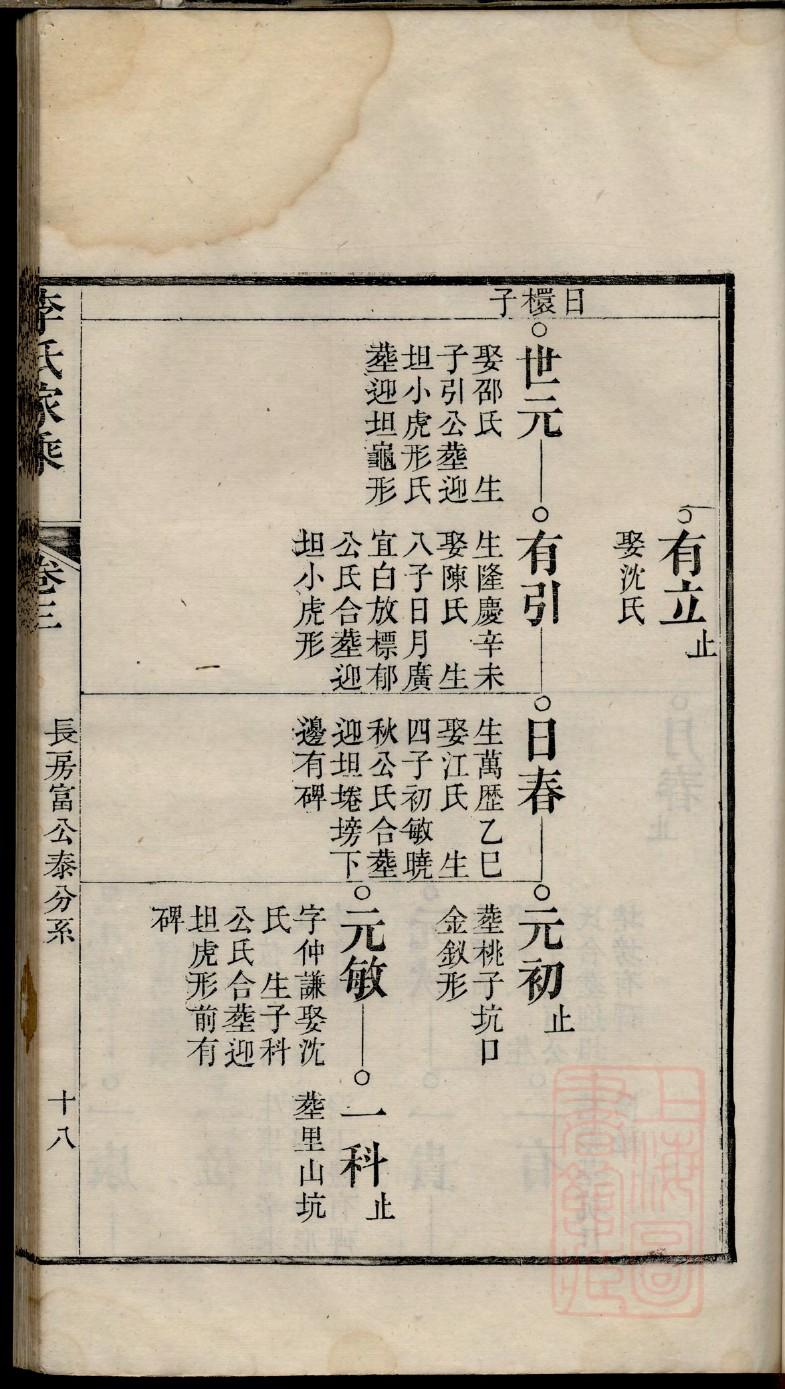 有立
止
娶沈氏
日檈子
世元
娶邵氏 生
子引公塟迎
坦小虎形氏
塟迎坦龜形
有引
生隆慶辛未
娶陳氏 生
八子日月廣
宜白放標郁
公氏合塟迎
坦小虎形
日春
生萬歴乙巳
娶江氏 生
四子初敏曉
秋公氏合塟
迎坦埢塝下
邊有碑
元初
止
塟桃子坑口
金釵形
元敏
字仲謙娶沈
氏 生子科
公氏合塟迎
坦虎形前有
碑
一科
止
塟里山坑
李氏家乘
卷三
長房富公泰分系
十八
上海圖書館藏